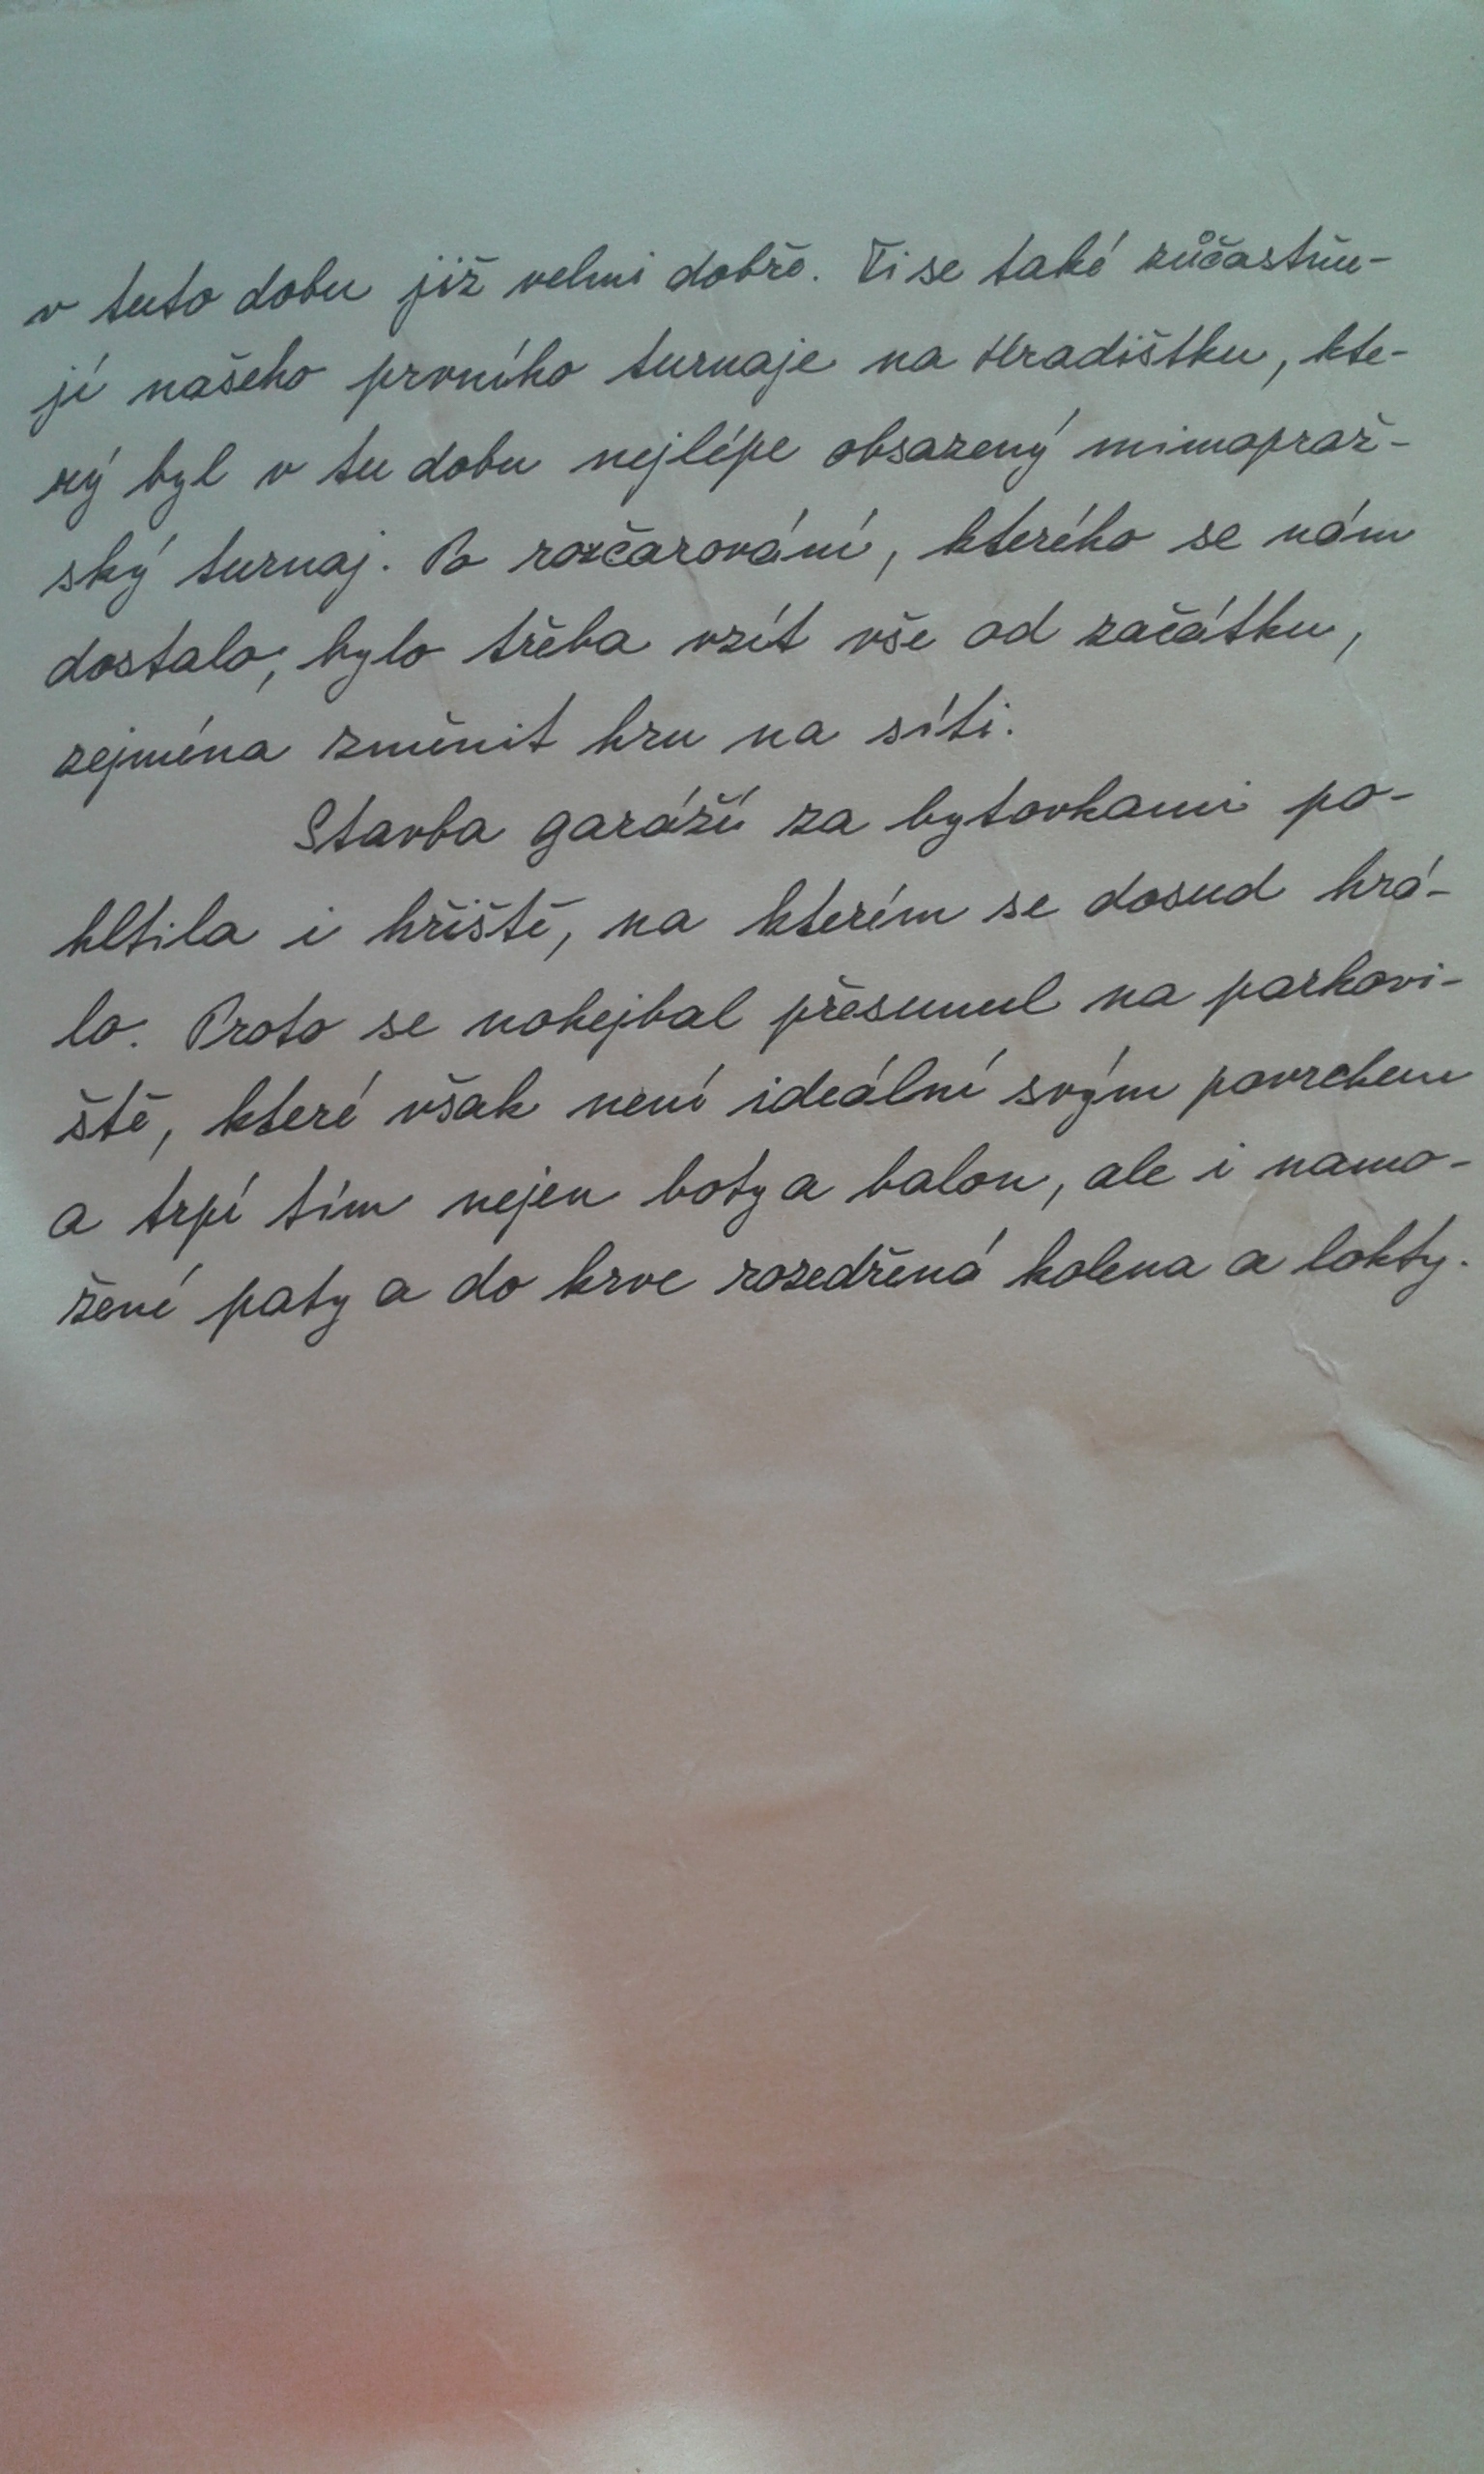 v tuto dobu již velmi dobře. Ti se také zůčastňu-
jí našeho prvního turnaje na Hradištku, kte-
rý byl v tu dobu nejlépe obsazený mimopraž-
ský turnaj. Po rozčarování, kterého se nám
dostalo, bylo třeba vzít vše od začátku,
zejména změnit hru na síti.
Stavba garáží za bytovkami po-
hltila i hřiště, na kterém se dosud hrá-
lo. Proto se nohejbal přesunul na parkovi-
ště, které však není ideální svým povrchem
a trpí tím nejen boty a balon, ale i namo-
žené paty a do krve rozedřená kolena a lokty.